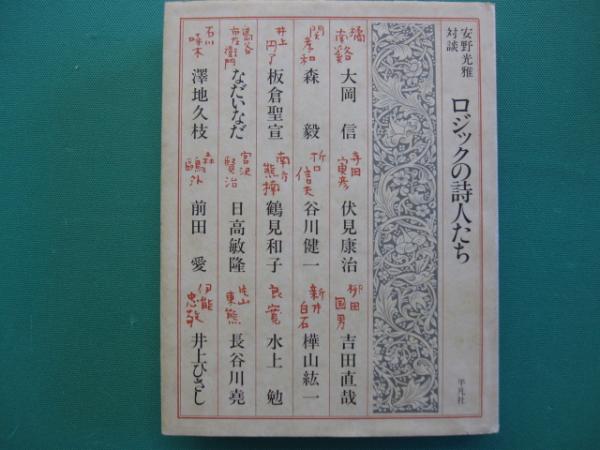 安野光雅
対談
ロジックの詩人たち
平凡社
橘
南谿
大岡 信
寺田
寅彦
伏見康治
柳田
国男
吉田直哉
関孝和
森 毅
折口
信夫
谷川健一
新井
白石
樺山紘一
井上
円了
板倉聖宣
南方
熊楠
鶴見和子
良寛
水上 勉
鳥谷
右左衛門
なだいなだ
宮沢
賢治
日高敏隆
片山
東熊
長谷川堯
石川
啄木
澤地久枝
森
鷗外
前田 愛
伊能
忠敬
井上ひさし